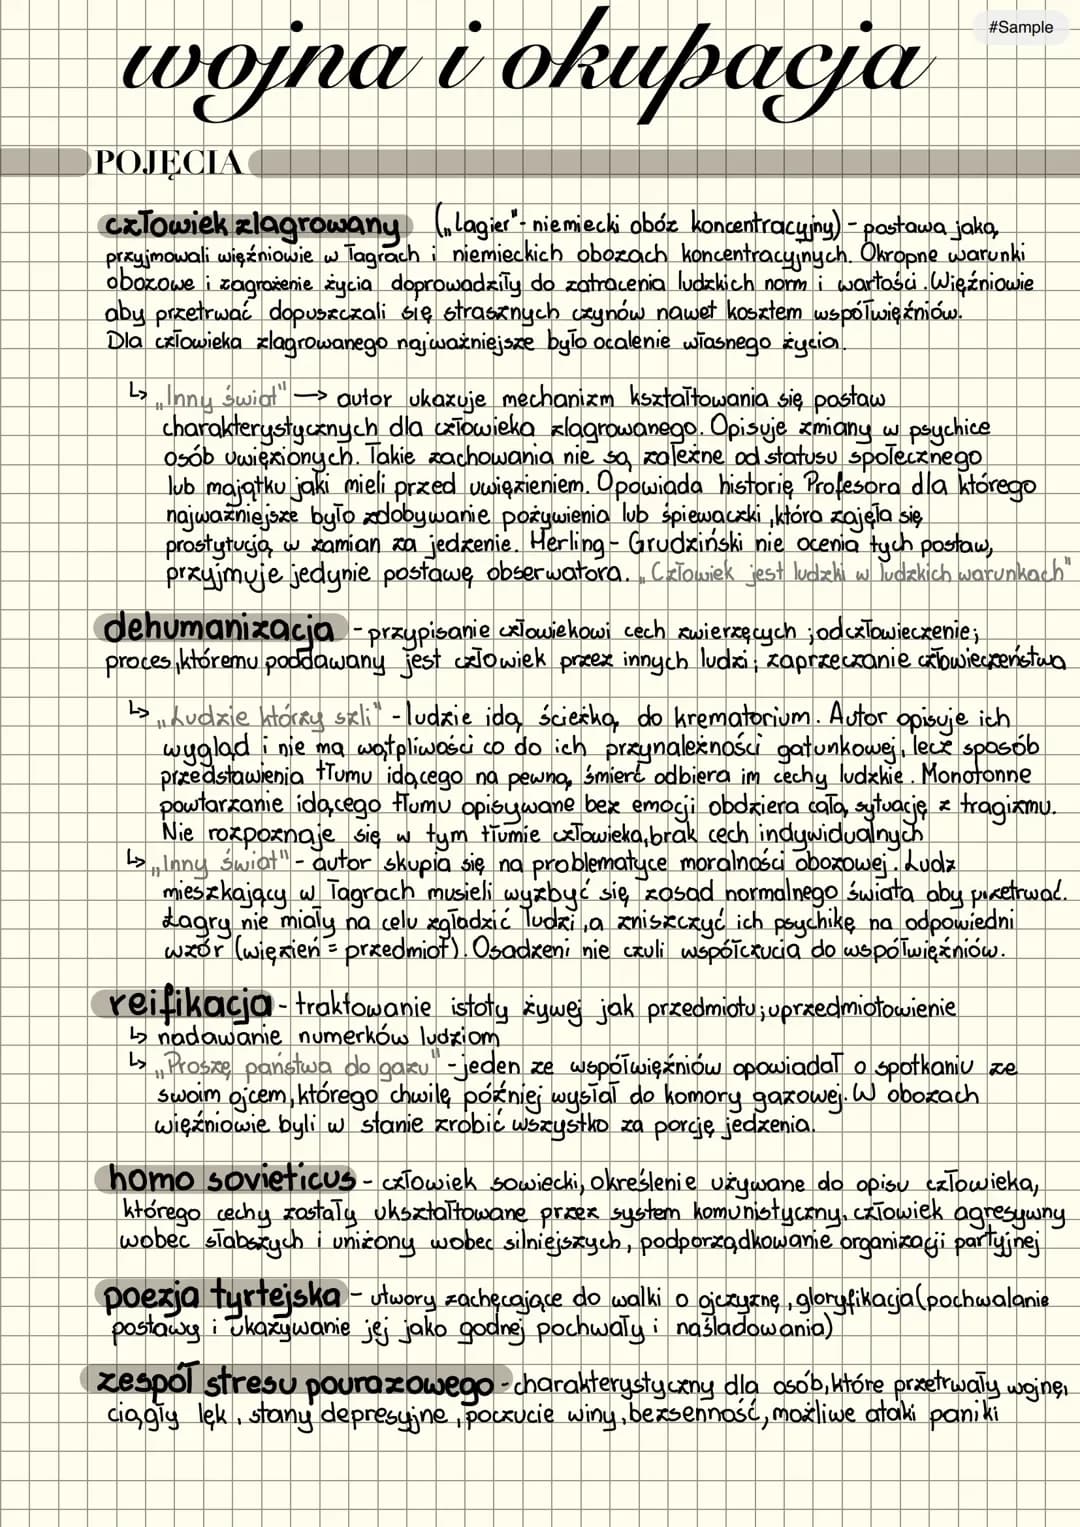 #Sample
wojna i okupacja
POJĘCIA
człowiek zlagrowany („Lagier"- niemiecki obóz koncentracyjny) - postawa jaką
przyjmowali więźniowie w łagrach i niemieckich obozach koncentracyjnych. Okropne warunki
obozowe i zagrożenie życia doprowadziły do zatracenia ludzkich norm i wartości. Więźniowie
aby przetrwać dopuszczali się strasznych czynów nawet kosztem współwięźniów.
Dla człowieka zlagrowanego najważniejsze było ocalenie własnego życia.
↳ „Inny świat" → autor ukazuje mechanizm kształtowania się postaw
charakterystycznych dla człowieka zlagrowanego. Opisuje zmiany w psychice
osób uwięzionych. Takie zachowania nie są zależne od statusu społecznego
lub majątku jaki mieli przed uwięzieniem. Opowiada historię Profesora dla którego
najważniejsze było zdobywanie pożywienia lub śpiewaczki, która zajęła się
prostytucją w zamian za jedzenie. Herling- Grudziński nie ocenia tych postaw,
przyjmuje jedynie postawę obserwatora. „Człowiek jest ludzki w ludzkich warunkach"
dehumanizacja - przypisanie człowiekowi cech zwierzęcych; odczłowieczenie;
proces, któremu poddawany jest człowiek przez innych ludzi; zaprzeczanie człowieczeństwa
↳ „Ludzie którzy szli" - ludzie idą ścieżką do krematorium. Autor opisuje ich
wygląd i nie ma wątpliwości co do ich przynależności gatunkowej, lecz sposób
przedstawienia tłumu idącego na pewną śmierć odbiera im cechy ludzkie. Monotonne
powtarzanie idącego tłumu opisywane bez emocji obdziera całą sytuację z tragizmu.
Nie rozpoznaje się w tym tłumie człowieka, brak cech indywidualnych
↳ „Inny świat" - autor skupia się na problematyce moralności obozowej. Ludz
mieszkający w łagrach musieli wyzbyć się zasad normalnego świata aby przetrwać.
Łagry nie miały na celu zgładzić ludzi, a zniszczyć ich psychikę na odpowiedni
wzór (więzień = przedmiot). Osadzeni nie czuli współczucia do współwięźniów.
reifikacja - traktowanie istoty żywej jak przedmiotu; uprzedmiotowienie
↳ nadawanie numerków ludziom
↳ „Proszę państwa do gazu" - jeden ze współwięźniów opowiadał o spotkaniu ze
swoim ojcem, którego chwilę później wysłał do komory gazowej. W obozach
więźniowie byli w stanie zrobić wszystko za porcję jedzenia.
homo sovieticus - człowiek sowiecki, określenie używane do opisu człowieka,
którego cechy zostały ukształtowane przez system komunistyczny, człowiek agresywny
wobec słabszych i uniżony wobec silniejszych, podporządkowanie organizacji partyjnej
poezja tyrtejska - utwory zachęcające do walki o ojczyznę, gloryfikacja (pochwalanie
postawy i ukazywanie jej jako godnej pochwały i naśladowania)
zespół stresu pourazowego - charakterystyczny dla osób, które przetrwały wojnę,
ciągły lęk, stany depresyjne, poczucie winy, bezsenność, możliwe ataki paniki